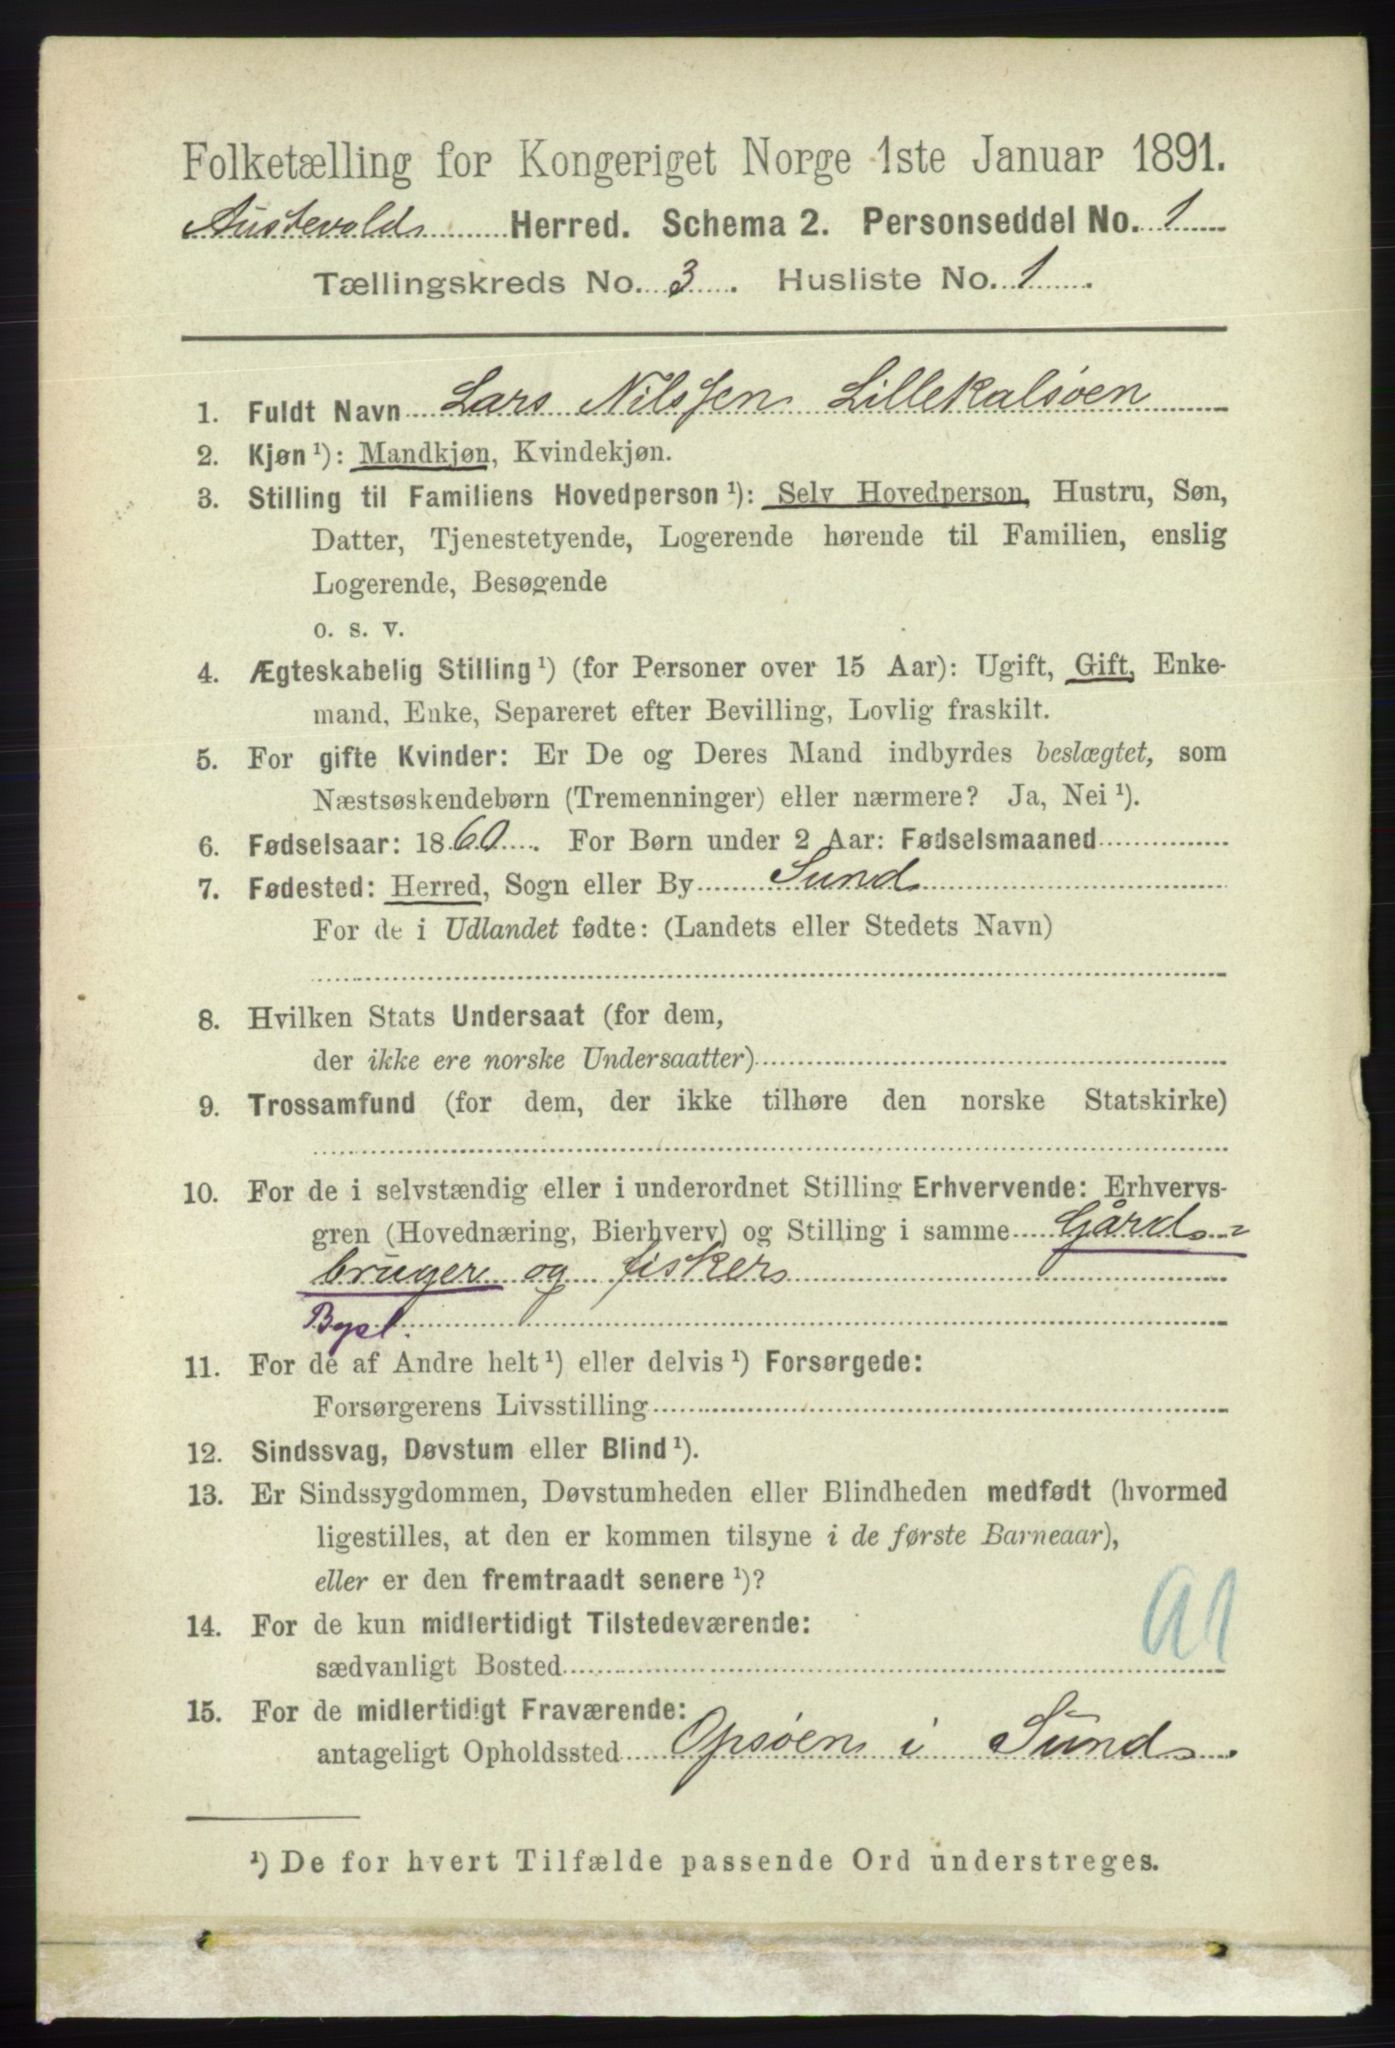 Folketælling for Kongeriget Norge 1ste Januar 1891.
Austevolds Herred. Schema 2. Personseddel No. 1
Tællingskreds No. 3. Husliste No. 1.
1. Fuldt Navn Lars Nilssen Lillekalsøen
2. Kjøn ¹): Mandkjøn, Kvindekjøn.
3. Stilling til Familiens Hovedperson ¹): Selv Hovedperson, Hustru, Søn,
Datter, Tjenestetyende, Logerende hørende til Familien, enslig
Logerende, Besøgende
o. s. v.
4. Ægteskabelig Stilling ¹) (for Personer over 15 Aar): Ugift, Gift, Enke-
mand, Enke, Separeret efter Bevilling, Lovlig fraskilt.
5. For gifte Kvinder: Er De og Deres Mand indbyrdes beslægtet, som
Næstsøskendebørn (Tremenninger) eller nærmere? Ja, Nei ¹).
6. Fødselsaar: 1860. For Børn under 2 Aar: Fødselsmaaned
7. Fødested: Herred, Sogn eller By Sund
For de i Udlandet fødte: (Landets eller Stedets Navn)
8. Hvilken Stats Undersaat (for dem,
der ikke ere norske Undersaatter)
9. Trossamfund (for dem, der ikke tilhøre den norske Statskirke)
10. For de i selvstændig eller i underordnet Stilling Erhvervende: Erhvervs-
gren (Hovednæring, Bierhverv) og Stilling i samme Gårds=
bruger og fisker
Bysl.
11. For de af Andre helt ¹) eller delvis ¹) Forsørgede:
Forsørgerens Livsstilling
12. Sindssvag, Døvstum eller Blind ¹).
13. Er Sindssygdommen, Døvstumheden eller Blindheden medfødt (hvormed
ligestilles, at den er kommen tilsyne i de første Barneaar),
eller er den fremtraadt senere ¹)?
14. For de kun midlertidigt Tilstedeværende:
sædvanligt Bosted
15. For de midlertidigt Fraværende:
antageligt Opholdssted Opsøen i Sund.
¹) De for hvert Tilfælde passende Ord understreges.